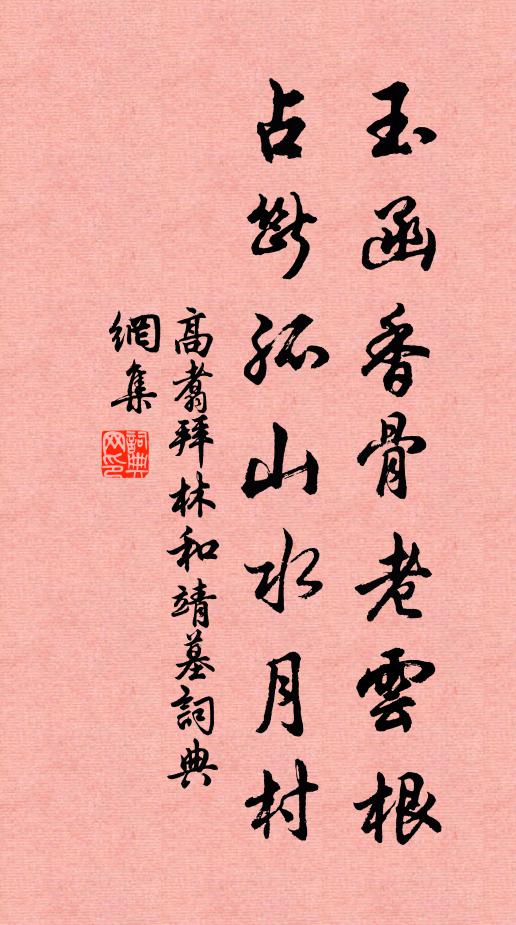 玉函香骨老雲根
占斷孤山水月村
高翥拜林和靖墓詞典
網集
詞典網印